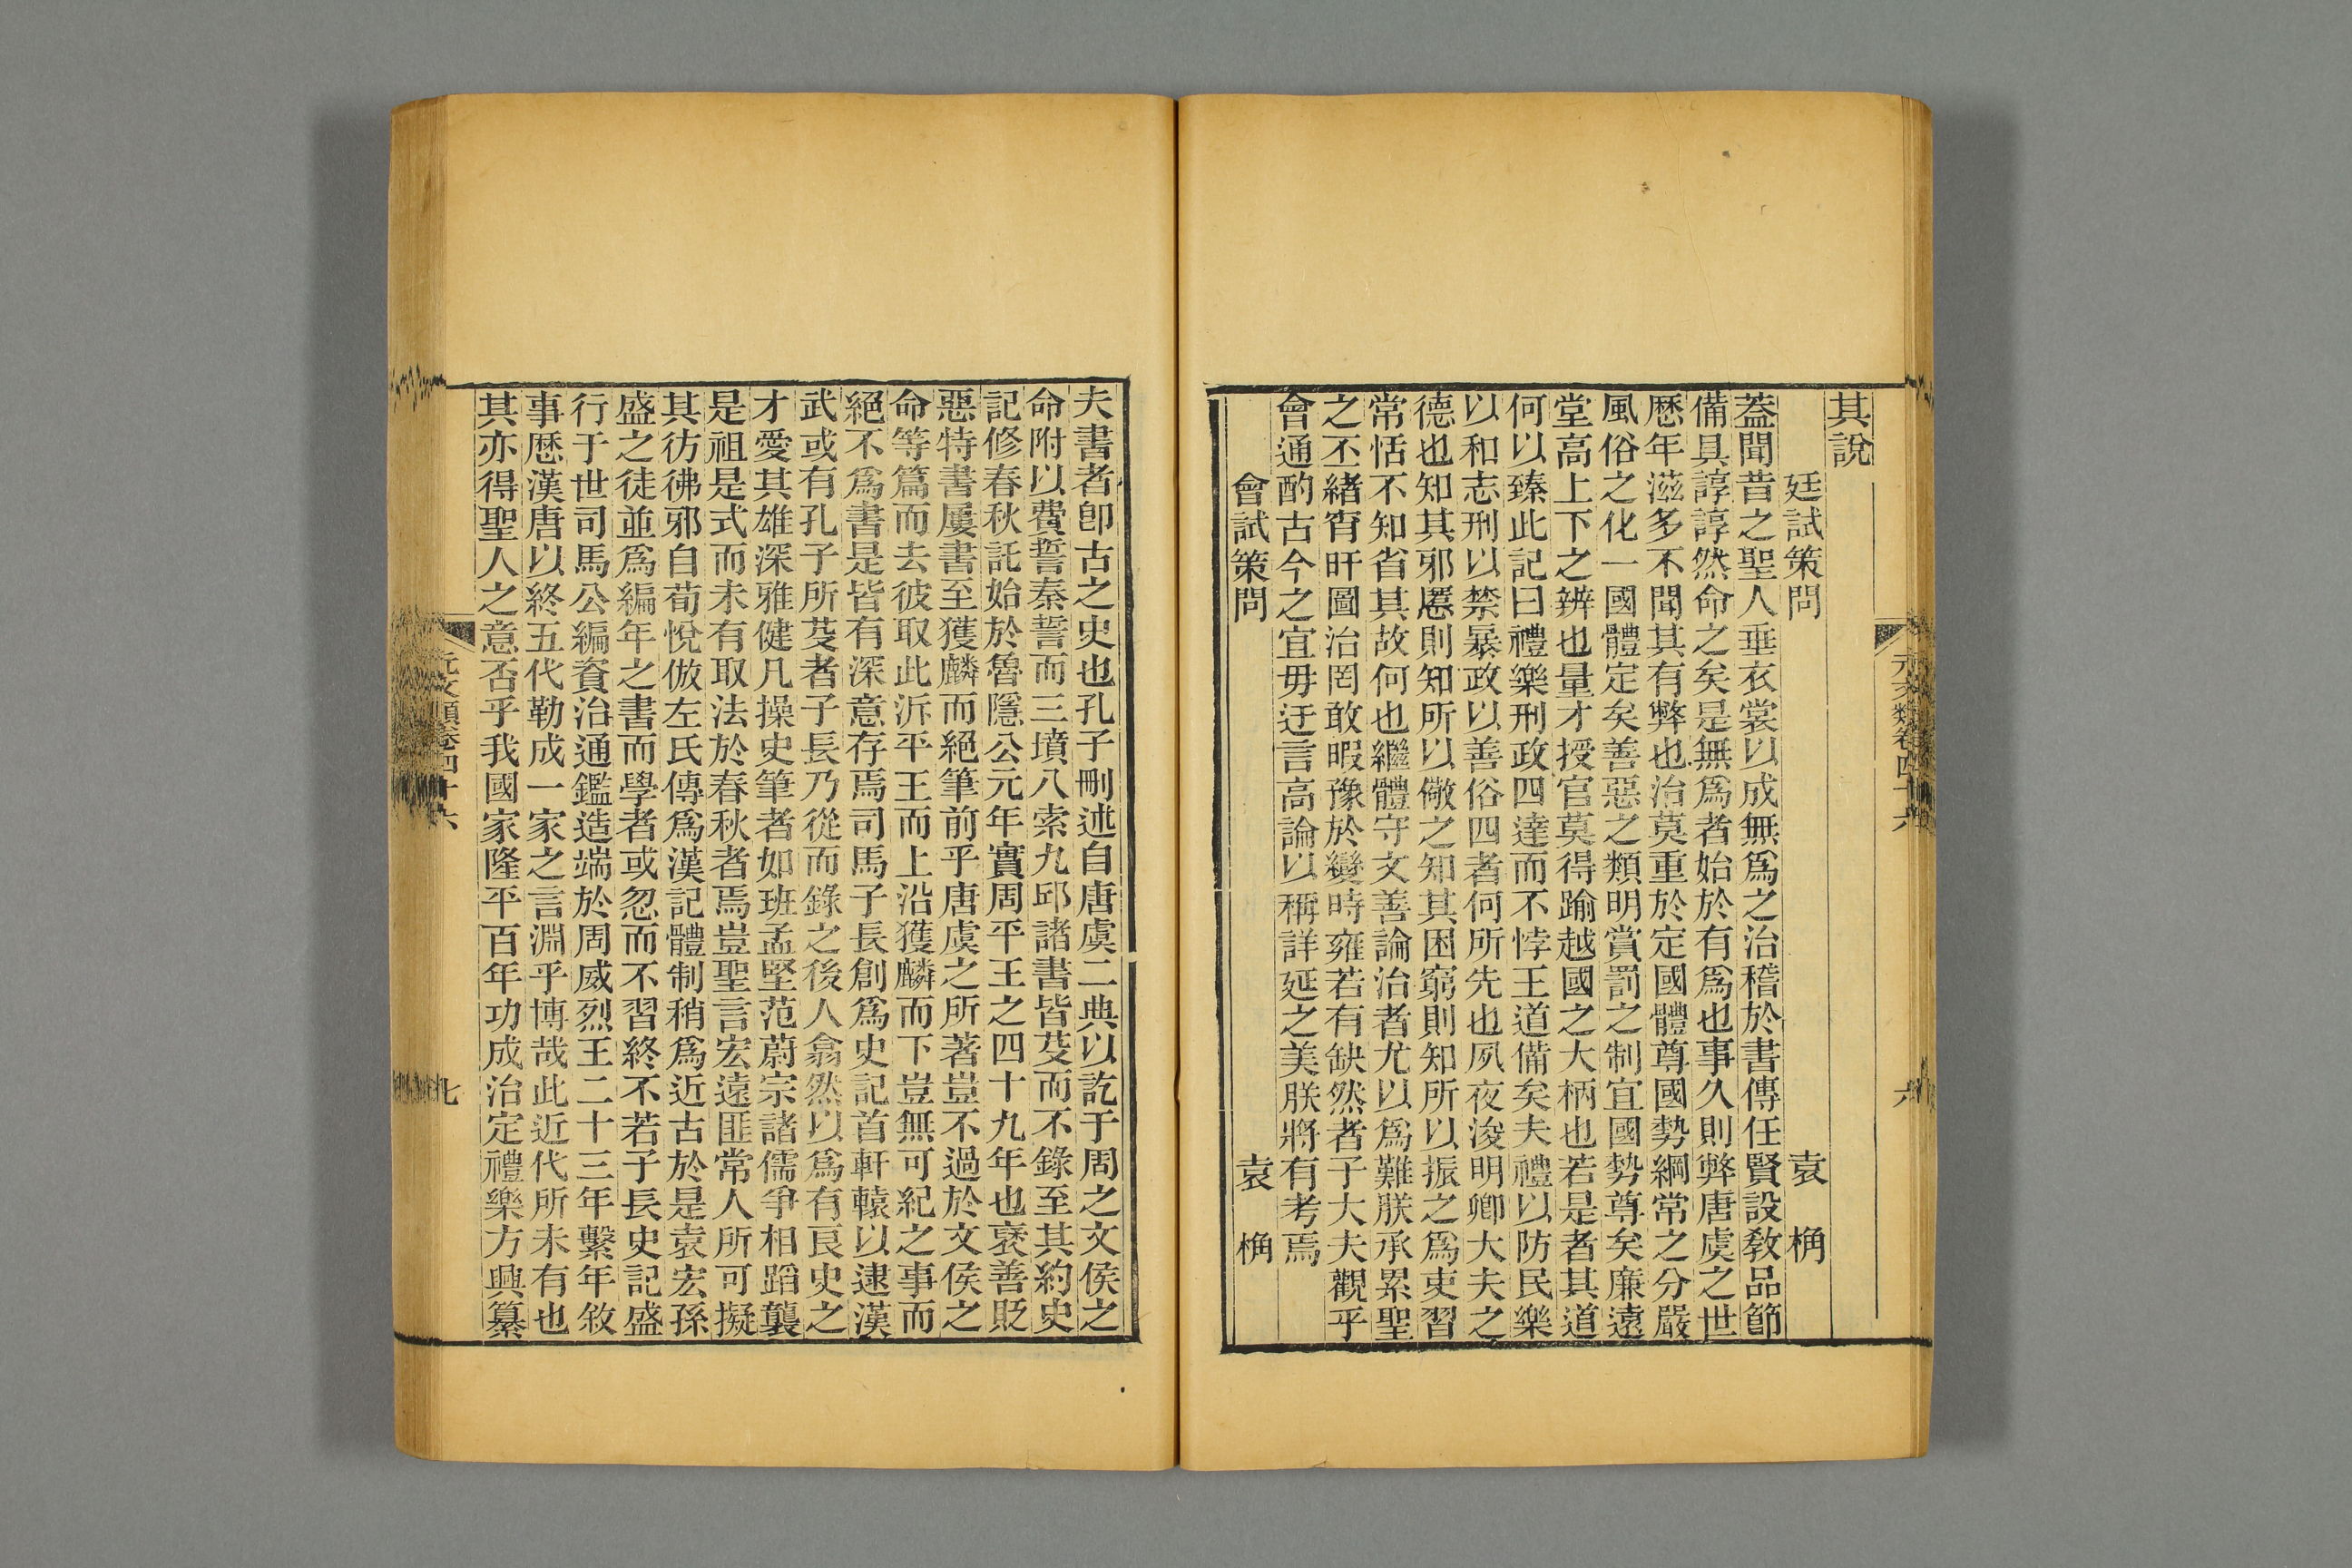 元文類卷四十六
六
其說
廷試策問 袁桷
蓋聞昔之聖人垂衣裳以成無爲之治稽於書傳任賢設教品節
備具諄諄然命之矣是無爲者始於有爲也事久則弊唐虞之世
歷年滋多不聞其有弊也治莫重於定國體尊國勢綱常之分嚴
風俗之化一國體定矣善惡之類明賞罰之制宜國勢尊矣廉遠
堂高上下之辨也量才授官莫得踰越國之大柄也若是者其道
何以臻此記曰禮樂刑政四達而不悖王道備矣夫禮以防民樂
以和志刑以禁暴政以善俗四者何所先也夙夜浚明卿大夫之
德也知其邪慝則知所以儆之知其困窮則知所以振之爲吏習
常恬不知省其故何也繼體守文善論治者尤以爲難朕承累聖
之丕緒宵旰圖治罔敢暇豫於變時雍若有缺然者子大夫觀乎
會通酌古今之宜毋迂言高論以稱詳延之美朕將有考焉
會試策問 袁桷
夫書者卽古之史也孔子刪述自唐虞二典以訖于周之文侯之
命附以費誓秦誓而三墳八索九邱諸書皆芟而不錄至其約史
記修春秋託始於魯隱公元年實周平王之四十九年也褒善貶
惡特書屢書至獲麟而絕筆前乎唐虞之所著豈不過於文侯之
命等篇而去彼取此泝平王而上沿獲麟而下豈無可紀之事而
絕不爲書是皆有深意存焉司馬子長創爲史記首軒轅以逮漢
武或有孔子所芟者子長乃從而錄之後人翕然以爲有良史之
才愛其雄深雅健凡操史筆者如班孟堅范蔚宗諸儒爭相蹈襲
是祖是式而未有取法於春秋者焉豈聖言宏遠匪常人所可擬
其彷彿邪自荀悅倣左氏傳爲漢記體制稍爲近古於是袁宏孫
盛之徒並爲編年之書而學者或忽而不習終不若子長史記盛
行于世司馬公編資治通鑑造端於周威烈王二十三年繫年敘
事歷漢唐以終五代勒成一家之言淵乎博哉此近代所未有也
其亦得聖人之意否乎我國家隆平百年功成治定禮樂方興纂
元文類卷四十六
七